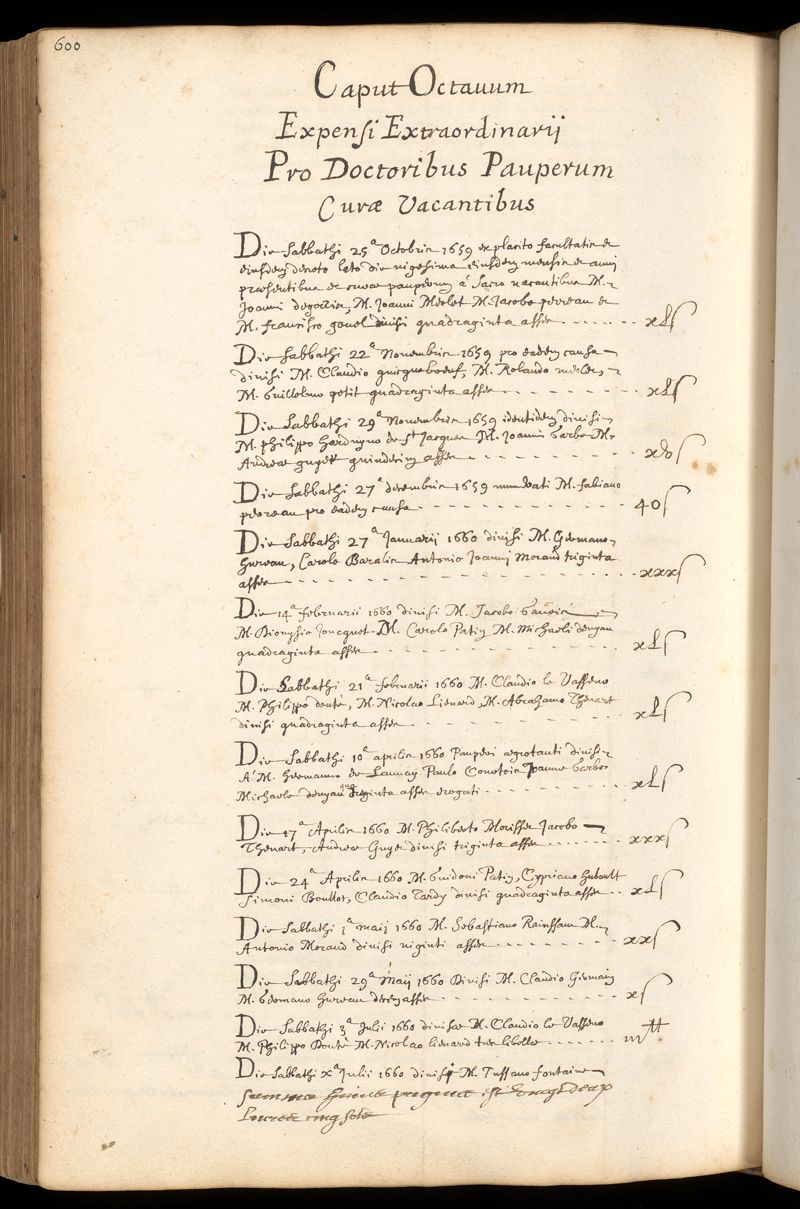 600
Caput Octauum
Expensi Extraordinarij
Pro Doctoribus Pauperum
Curæ Vacantibus
Die Sabbathi 25ª Octobris 1659 ex placito facultatis et
eiusdem decreto lato die uigesima eiusdem mensis et anni
præsentibus et curæ pauperum á sacro uacantibus M.
Joanni M. Joanni Merlet M. Jacobo perreau et
M. francisco diuisi quadraginta asses ...... xLſ
Die Sabbathi 22ª Nouembris 1659 pro eadem causa
diuisi M. Claudio quiqueboeuf, M. Rolando
M. Guillelmo petit quadraginta asses ...... xLſ
Die Sabbathi 29ª Nouembris 1659 identidem diuisi
M. philippo harduyno de St Jacques M. Joanni Garbe M.
Andreæ guyet quindecim asses ......
Die Sabbathi 27ª decembris 1659 numerati M. fabiano
perreau pro eadem causa ...... 40ſ
Die Sabbathi 27ª Januarij 1660 diuisi M. Germano
hureau, Carolo Baralis Antonio Joanni Morand triginta
asses ...... xxxſ
Die 14ª februarii 1660 diuisi M. Jacobo
M. Dionysio Joncquet M. Carolo Patin M. Michaeli denyau
quadraginta asses ...... xLſ
Die Sabbathi 21ª februarii 1660 M. Claudio le Vasseur
M. Philippo donté, M. Nicolao Lienard, M. Abrahamo Thevart
diuisi quadraginta asses ...... xLſ
Die Sabbathi 10ª aprilis 1660 Pauperi ægrotanti diuisi
A M. Hermanno de Launay Paulo Courtois Joanne Garbe
Michaele denyau asses erogati ...... xLſ
Die 17ª Aprilis 1660 M. Philiberto Morisset Jacobo
Thevart, Andreæ Guyet diuisi triginta asses ...... xxxſ
Die 24ª Aprilis 1660 M. Guidoni Patin, Cypriano hubault
Simoni Boullot, Claudio Tardy diuisi quadraginta asses .. xLſ
Die Sabbathi 1ª maij 1660 M. Sebastiano Rainssant M.
Antonio Morand diuisi uiginti asses ...... xxſ
Die Sabbathi 29ª Maij 1660 Diuisi M. Claudio Germain
M. Germano hureau decem asses ...... xſ
Die Sabbathi 3ª Julii 1660 diuisæ M. Claudio le Vasseur
M. Philippo Donté M. Nicolao lienard tres libellæ ...... iii tt
Die Sabbathi xª Julii 1660 diuisi M. Tussano fontaine
summa huius paginæ est
cinq sols